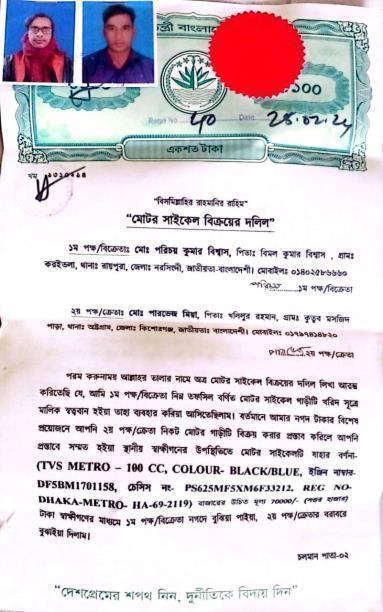 ১০০
Regn No. 40 Date. 25.02.24
একশত টাকা
"বিসমিল্লাহির রাহমানির রাহিম"
"মোটর সাইকেল বিক্রয়ের দলিল"
১ম পক্ষ/বিক্রেতাঃ মোঃ পরিচয় কুমার বিশ্বাস, পিতাঃ বিমল কুমার বিশ্বাস , গ্রামঃ
করইতলা, থানাঃ রায়পুরা, জেলাঃ নরসিংদী, জাতীয়তা-বাংলাদেশী। মোবাইলঃ ০১৪০২৫৮৬৬৬০
১ম পক্ষ/বিক্রেতা
২য় পক্ষ/ক্রেতাঃ মোঃ পারভেজ মিয়া, পিতাঃ খলিলুর রহমান, গ্রামঃ কুতুব মসজিদ
পাড়া, থানাঃ অষ্টগ্রাম, জেলাঃ কিশোরগঞ্জ, জাতীয়তাঃ বাংলাদেশী। মোবাইলঃ ০১৭৯৭৪১৪৮২০
২য় পক্ষ/ক্রেতা
পরম করুনাময় আল্লাহর তালার নামে অত্র মোটর সাইকেল বিক্রয়ের দলিল লিখা আরম্ভ
করিতেছি যে, আমি ১ম পক্ষ/বিক্রেতা নিম্ন তফসিল বর্ণিত মোটর সাইকেল গাড়ীটি খরিদ সূত্রে
মালিক স্বত্ববান হইয়া তাহা ব্যবহার করিয়া আসিতেছিলাম। বর্তমানে আমার নগদ টাকার বিশেষ
প্রয়োজনে আপনি ২য় পক্ষ/ক্রেতা নিকট মোটর গাড়ীটি বিক্রয় করার প্রস্তাব করিলে আপনি
প্রস্তাবে সম্মত হইয়া স্থানীয় স্বাক্ষীগনের উপস্থিতিতে মোটর সাইকেলটি যাহার বর্ণনা-
(TVS METRO – 100 CC, COLOUR- BLACK/BLUE, ইঞ্জিন নাম্বার-
DF5BM1701158, চেসিস নং- PS625MF5XM6F33212, REG NO-
DHAKA-METRO- HA-69-2119) বাজারের উচিত মূল্য 70000/- (সত্তর হাজার)
টাকা স্বাক্ষীগনের মাধ্যমে ১ম পক্ষ/বিক্রেতা নগদে বুঝিয়া পাইয়া, ২য় পক্ষ/ক্রেতার বরাবরে
বুঝাইয়া দিলাম।
চলমান পাতা-০২
"দেশপ্রেমের শপথ নিন, দুর্নীতিকে বিদায় দিন"